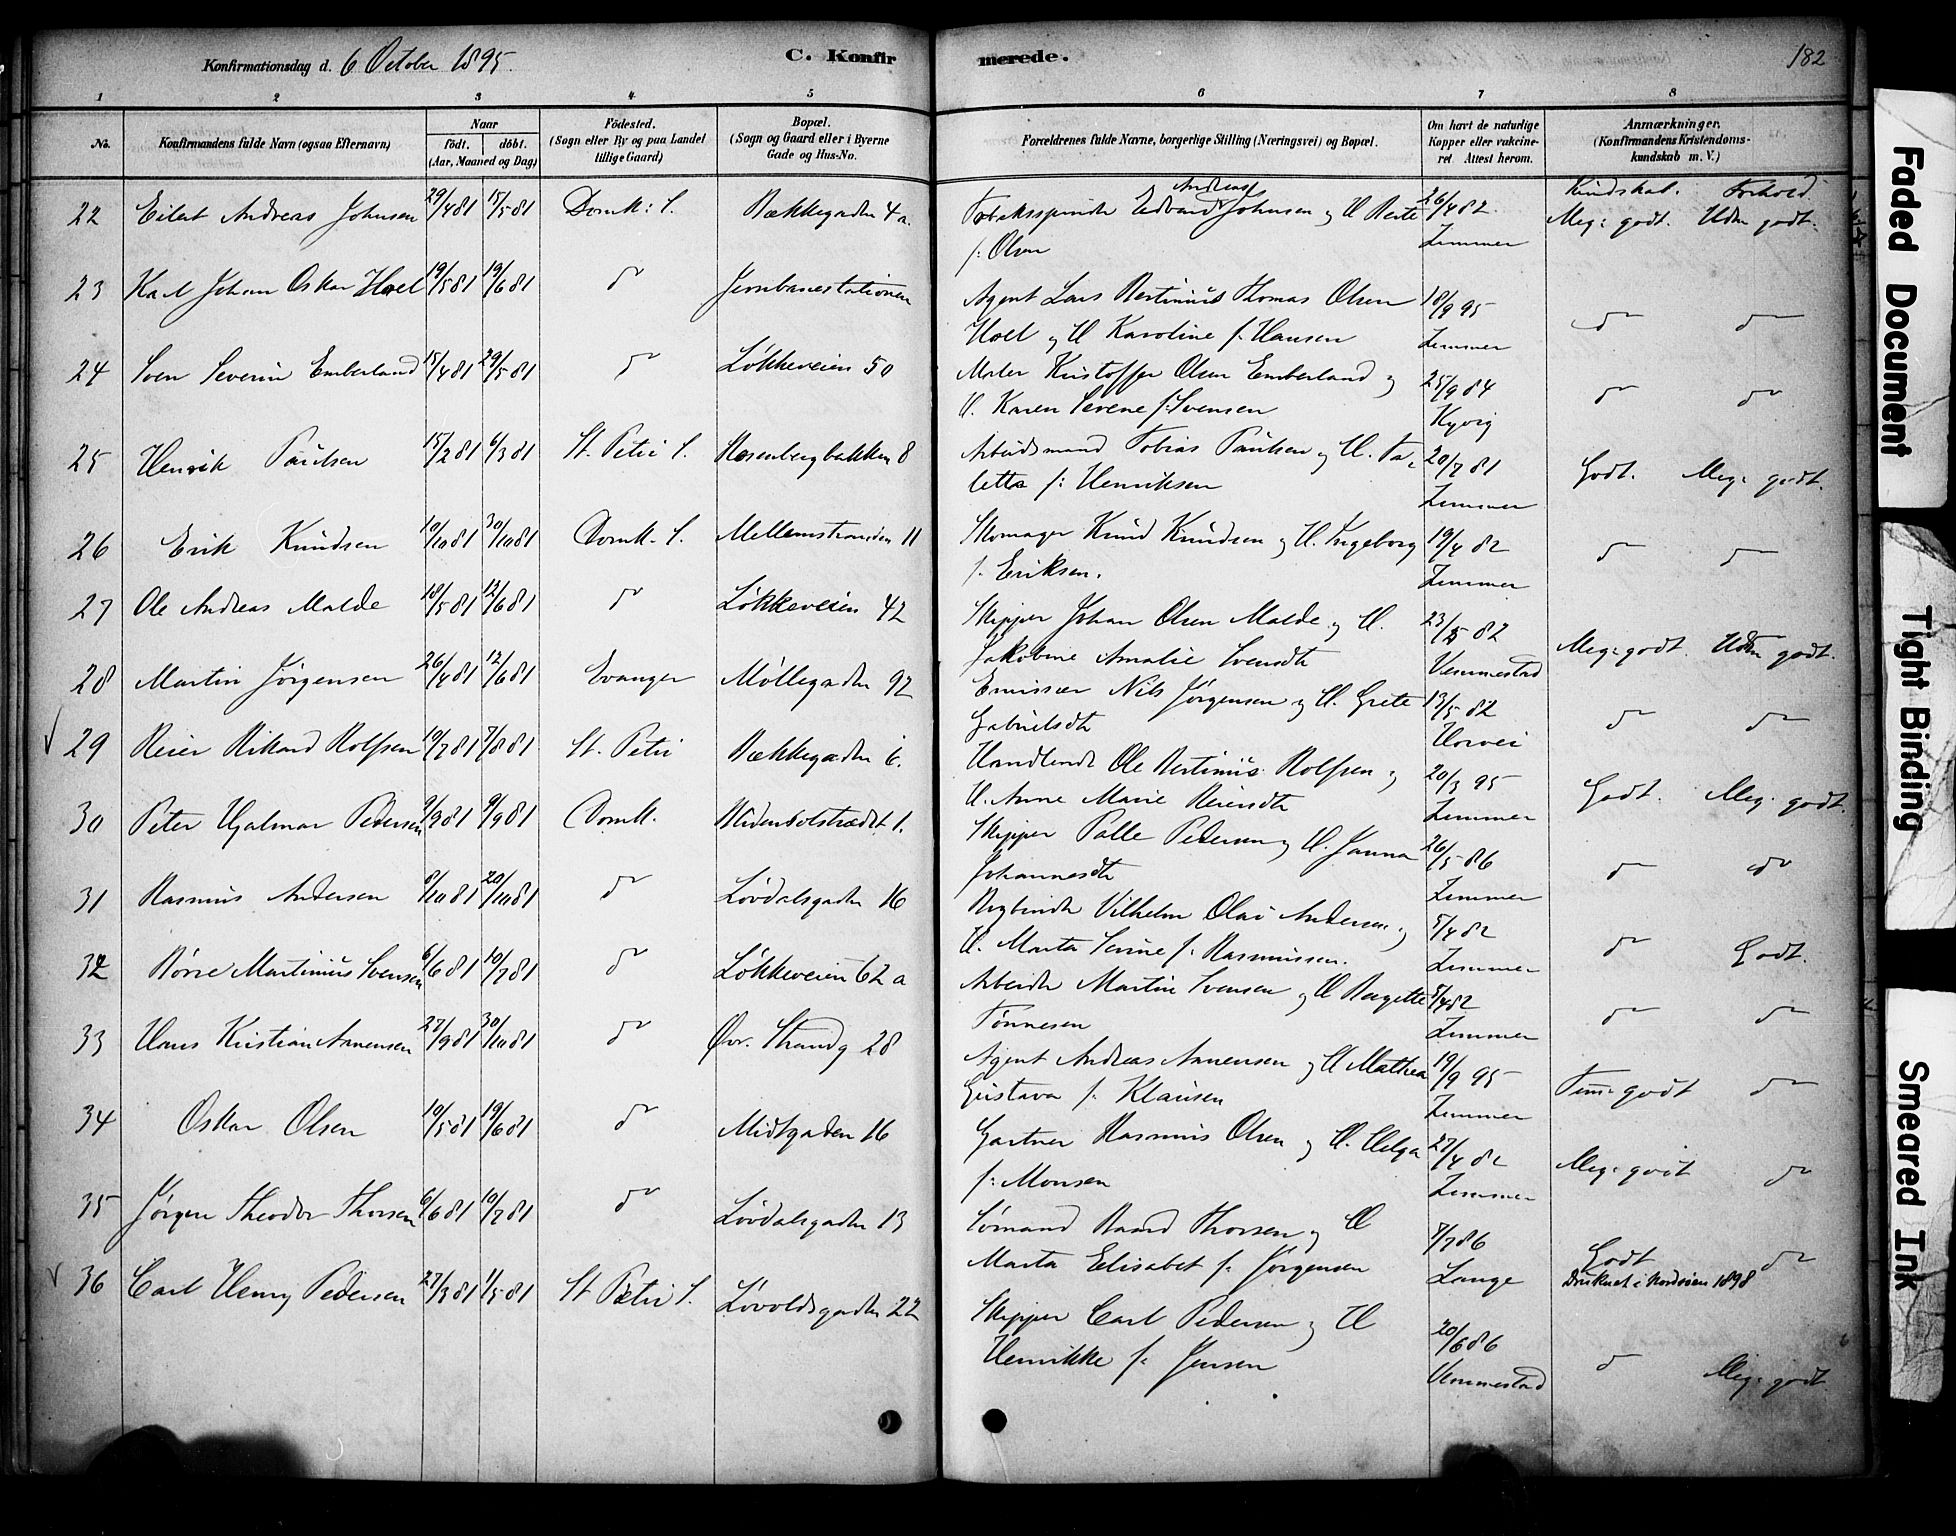 Konfirmationsdag d. 6 October 1895.
C. Konfirmerede.
182
1 2 3 4 5 6 7 8
No.
Konfirmandens fulde Navn (ogsaa Efternavn)
Naar
födt. döbt.
(Aar, Maaned og Dag)
Födested.
(Sogn eller By og paa Landet
tillige Gaard)
Bopæl.
(Sogn og Gaard eller i Byerne
Gade og Hus-No.
Forældrenes fulde Navne, borgerlige Stilling (Næringsvei) og Bopæl.
Om havt de naturlige
Kopper eller vakcine-
ret. Attest herom.
Anmærkninger.
(Konfirmandens Kristendoms-
kundskab m. V.)
Kundskab. Forhold.
22 Eilert Andreas Johnsen 29/4 81 15/5 81 Domk: S. Bækkegaden 4a.
Tobaksspinder Edvard Andreas Johnsen og H Berte 26/4 82 Meg: godt. Udm godt.
f: Olsen Zimmer
23 Karl Johan Oskar Hoel 19/5 81 19/6 81 do Jernbanestationen
Agent Lars Bertinius Thomas Olsen 18/9 95 do do
Hoel og H Karoline f. Hansen Zimmer
24 Sven Severin Emberland 15/4 81 29/5 81 do Løkkeveien 50
Maler Kristoffer Olsen Emberland og 25/9 84 do do
H. Karen Serene f: Svensen Kyvig
25 Henrik Paulsen 15/2 81 6/3 81 St. Petri S. Rosenbergbakken 8
Arbeidsmand Tobias Paulsen og H. Ta- 20/7 81 Godt. Meg: godt.
letta f: Henriksen Zimmer
26 Erik Knudsen 10/10 81 30/10 81 Domk. S. Mellemstranden 11
Skomager Knud Knudsen og H. Ingeborg 19/4 82 do do
f. Eriksen. Zimmer
27 Ole Andreas Malde 18/5 81 12/6 81 do Løkkeveien 42
Skipper Johan Olsen Malde og H. 23/5 82 Meg: godt. Udm godt.
Jakobine Amalie Svendsdt Vemmestad
28 Martin Jørgensen 26/4 81 12/6 81 Evanger Møllegaden 92
Emissær Nils Jørgensen og H. Grete 13/5 82 do do
Gabrielsdt Horvei
29 Reier Rikard Rolfsen 10/7 81 7/8 81 St. Petri Bækkegaden 6.
Handlende Ole Bertinius Rolfsen og 20/3 95 Godt. Meg: godt.
H. Anne Marie Reiersdt Zimmer
30 Peter Hjalmar Pedersen 9/9 81 9/9 81 Domk. Nidenbolstrædet 1.
Skipper Palle Pedersen og H. Janna 26/5 86 do do
Johannesdt Zimmer
31 Rasmus Andersen 8/10 81 20/10 81 do Løvdalsgaden 16
Bogbinder Vilhelm Olai Andersen og 5/4 82 do Godt.
H. Marta Serine f: Rasmussen. Zimmer
32 Børre Martinius Svensen 6/6 81 10/7 81 do Løkkeveien 62a
Arbeider Martin Svensen og H Bergette 5/4 82 do do
Tønnesen Zimmer
33 Hans Kristian Annensen 27/9 81 30/10 81 do Øvr. Strandg 28
Agent Andreas Annensen og H Mathea 19/9 95 Tem: godt do
Gustava f: Klausen Zimmer
34 Oskar Olsen 10/5 81 19/6 81 do Midtgaden 16
Gartner Rasmus Olsen og H. Helga 27/4 82 Meg: godt do
f: Monsen Zimmer
35 Jørgen Theodor Thorsen 6/6 81 10/7 81 do Løvdalsgaden 13
Sømand Baard Thorsen og H 8/7 86 Godt do
Marta Elisabet f. Jørgensen Lange Druknet i Nordsøen 1898
36 Carl Henry Pedersen 27/3 81 1/5 81 St Petri S. Løvoldsgaden 22
Skipper Carl Pedersen og H 20/6 86 do Meg: godt
Henrikke f: Jensen Vemmestad
Faded Document
Tight Binding
Smeared Ink